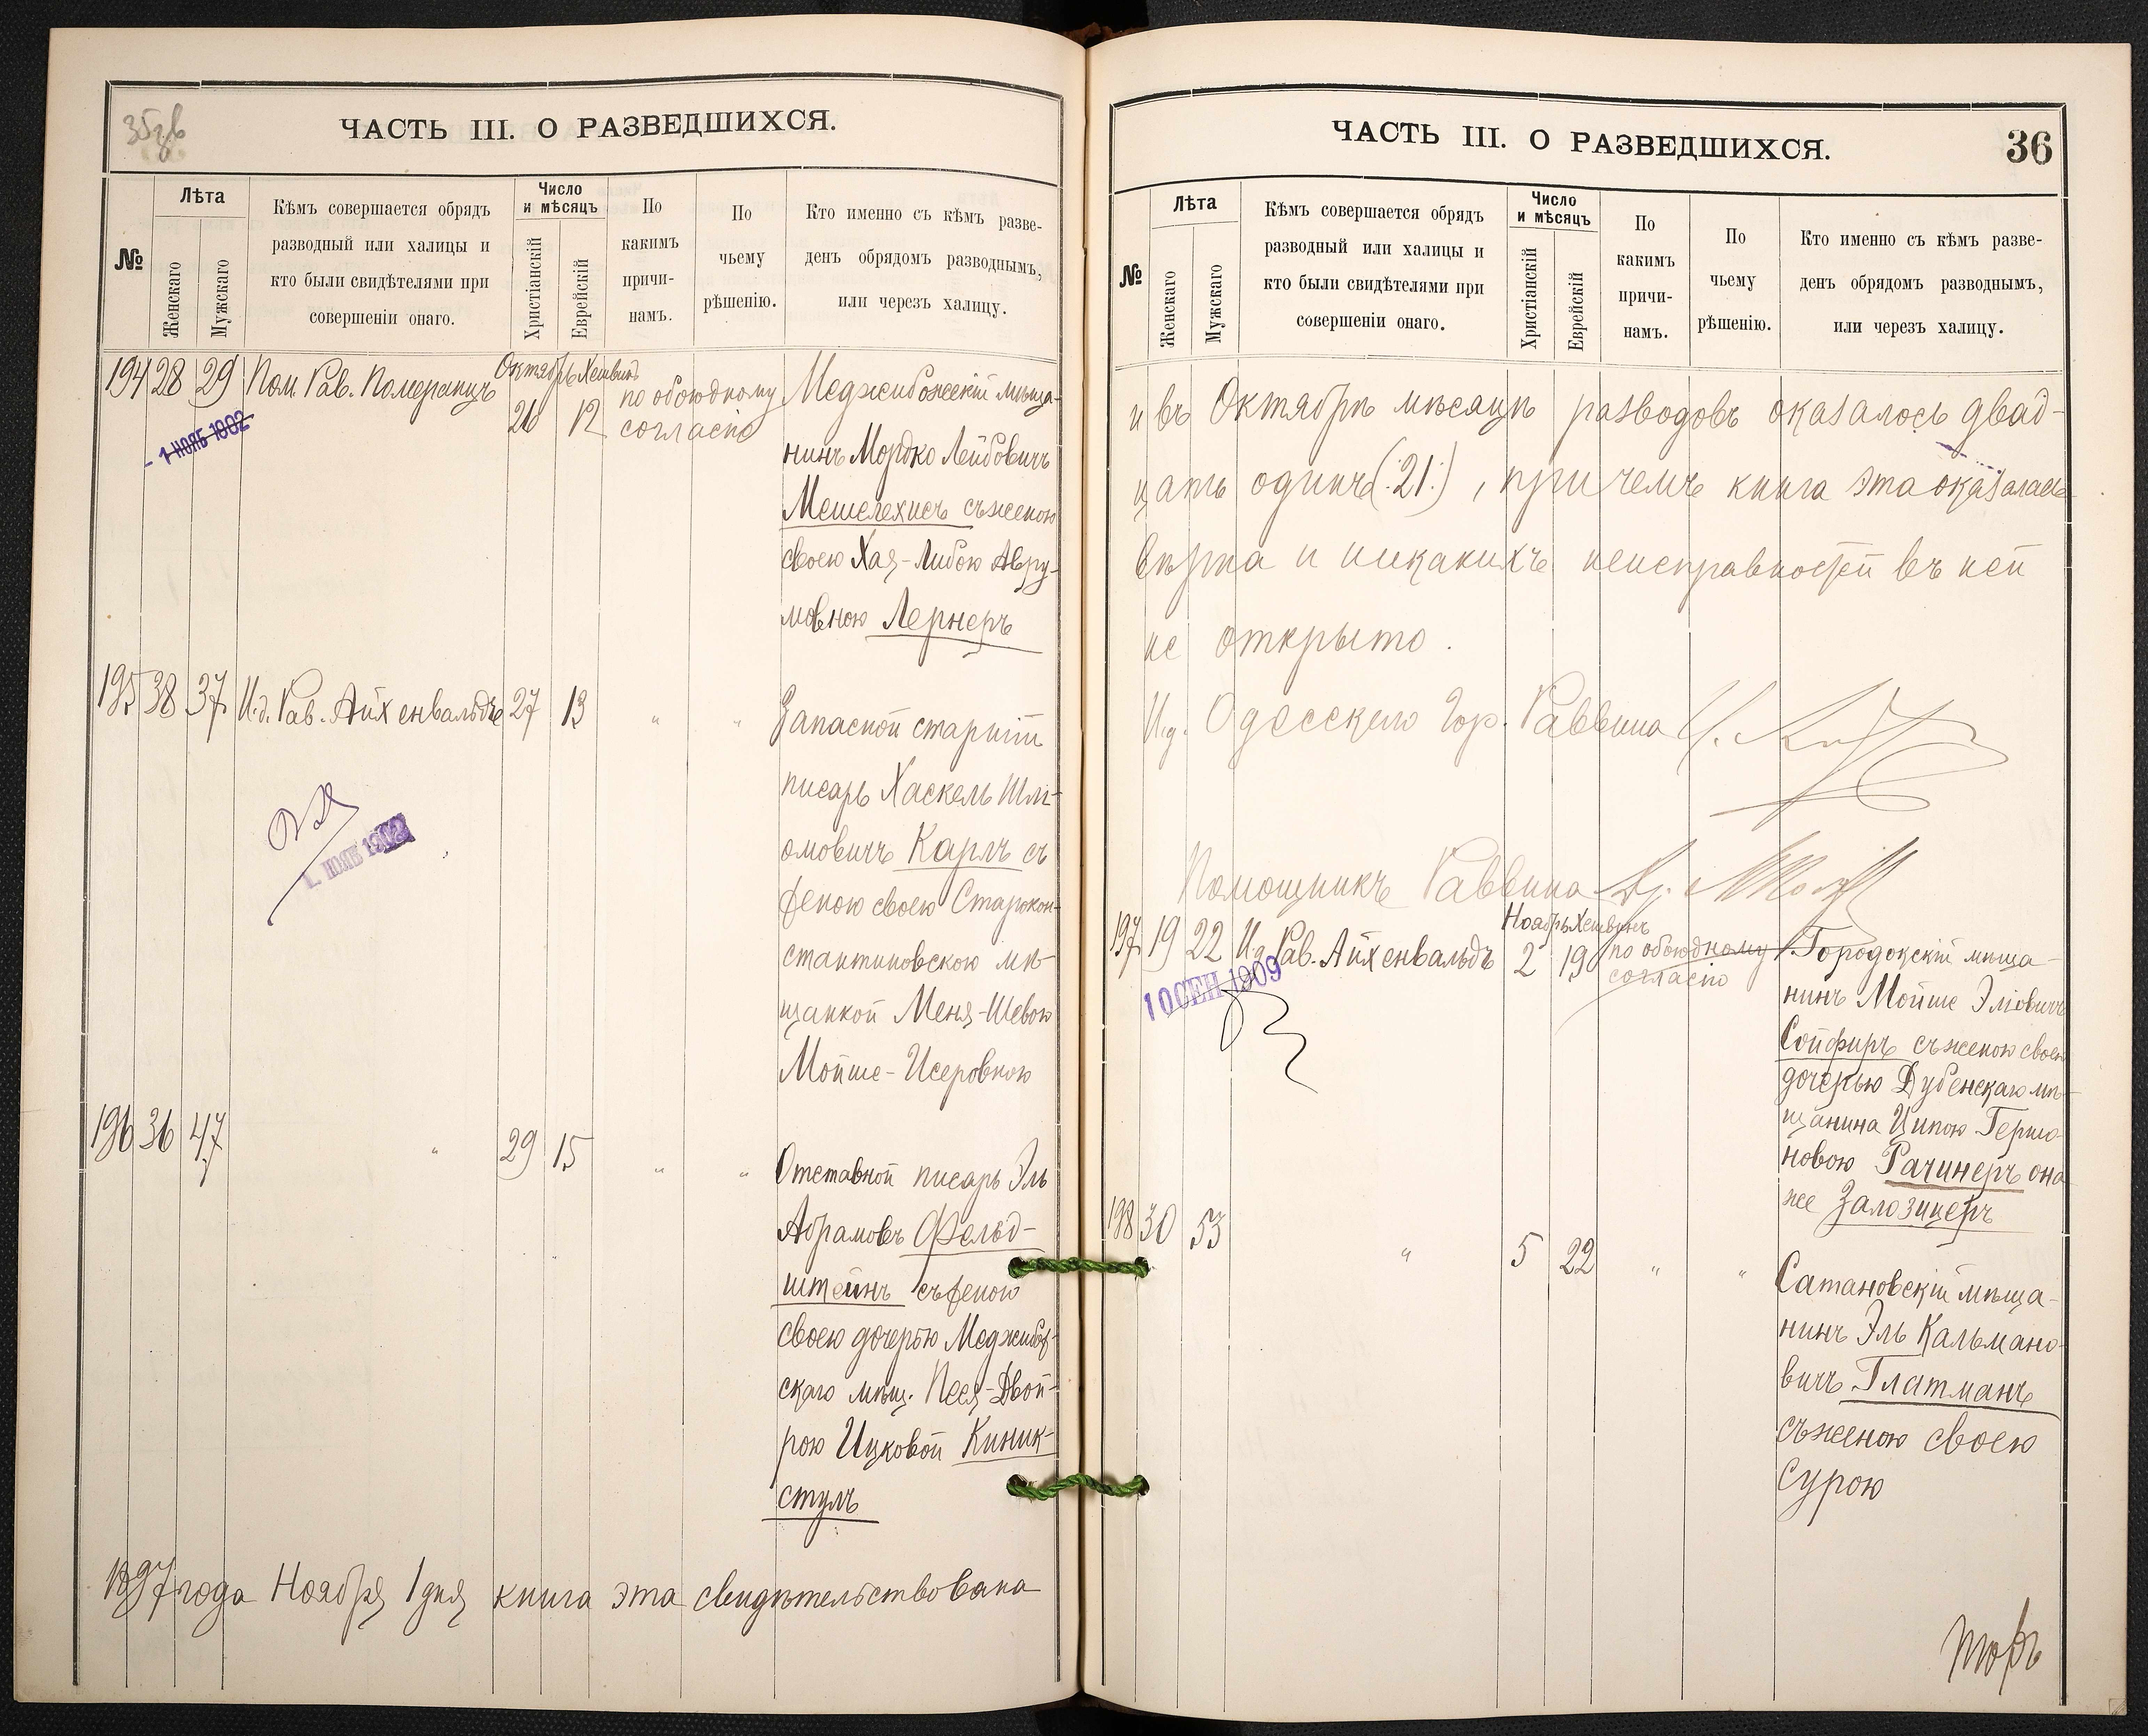 35 об
ЧАСТЬ III. О РАЗВЕДШИХСЯ.
№
Лѣта
Женскаго
Мужскаго
Кѣмъ совершается обрядъ
разводный или халицы и
кто были свидѣтелями при
совершеніи онаго.
Число
и мѣсяцъ
Христіанскій
Еврейскій
По
какимъ
причи-
намъ.
По
чьему
рѣшенію.
Кто именно съ кѣмъ разве-
денъ обрядомъ разводнымъ,
или черезъ халицу.
194 28 29 Пом. Рав. Померанцъ
Октябрь Хешвинъ
26 12
по обоюдному
согласію
Меджибожскій мѣща-
нинъ Мордко Лейбовичъ
Мешелехисъ съ женою
своею Хая-Либою Авру-
мовною Лернеръ
- 1 НОЯБ 1902
195 38 37 И.д. Рав. Айхенвальдъ 27 13 " "
Запасной старшій
писарь Хаскель Шлі-
омовичъ Карлъ съ
женою своею Старокон-
стантиновскою мѣ-
щанкой Меня-Шевою
Мойше-Исеровною
1. НОЯБ 1902
196 36 47 " 29 15 " "
Отставной писарь Эль
Абрамовъ Фельд-
штейнъ съ женою
своею дочерью Меджибож-
скаго мѣщ. Песя-Двой-
рою Ицковой Киник-
стулъ
1897 года Ноября 1 дня книга эта свидѣтельствована
ЧАСТЬ III. О РАЗВЕДШИХСЯ.
36
№
Лѣта
Женскаго
Мужскаго
Кѣмъ совершается обрядъ
разводный или халицы и
кто были свидѣтелями при
совершеніи онаго.
Число
и мѣсяцъ
Христіанскій
Еврейскій
По
какимъ
причи-
намъ.
По
чьему
рѣшенію.
Кто именно съ кѣмъ разве-
денъ обрядомъ разводнымъ,
или черезъ халицу.
и въ Октябрѣ мѣсяцѣ разводовъ оказалось двад-
цать одинъ (:21:), при чемъ книга эта оказалась
вѣрна и никакихъ неисправностей въ ней
не открыто.
И.д. Одесскаго Гор. Раввина
Помощникъ Раввина
197 19 22 И.д. Рав. Айхенвальдъ
Ноябрь Хешвинъ
2 19
по обоюдному
согласію
Городокскій мѣща-
нинъ Мойше Эліовичъ
Сойферъ съ женою своею
дочерью Дубенскаго мѣ-
щанина Ципою Гершо-
новою Рачинеръ она
же Залозицеръ
10 СЕН 1909
198 30 53 " 5 22 " "
Сатановскій мѣща-
нинъ Эль Кальмано-
вичъ Глатманъ
съ женою своею
Сурою